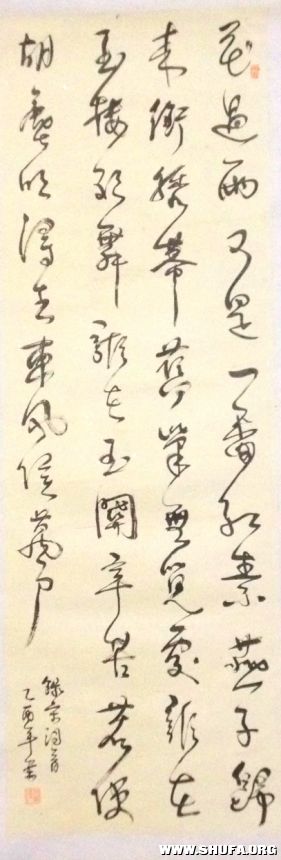 花過雨又是一番紅素燕子歸
来銜繡幕舊巢無覓處誰在
玉樓歌舞誰在玉關辛苦若使
胡塵吹得去東風侯萬户
錄宋詞首
乙酉年
WWW.SHUFA.ORG